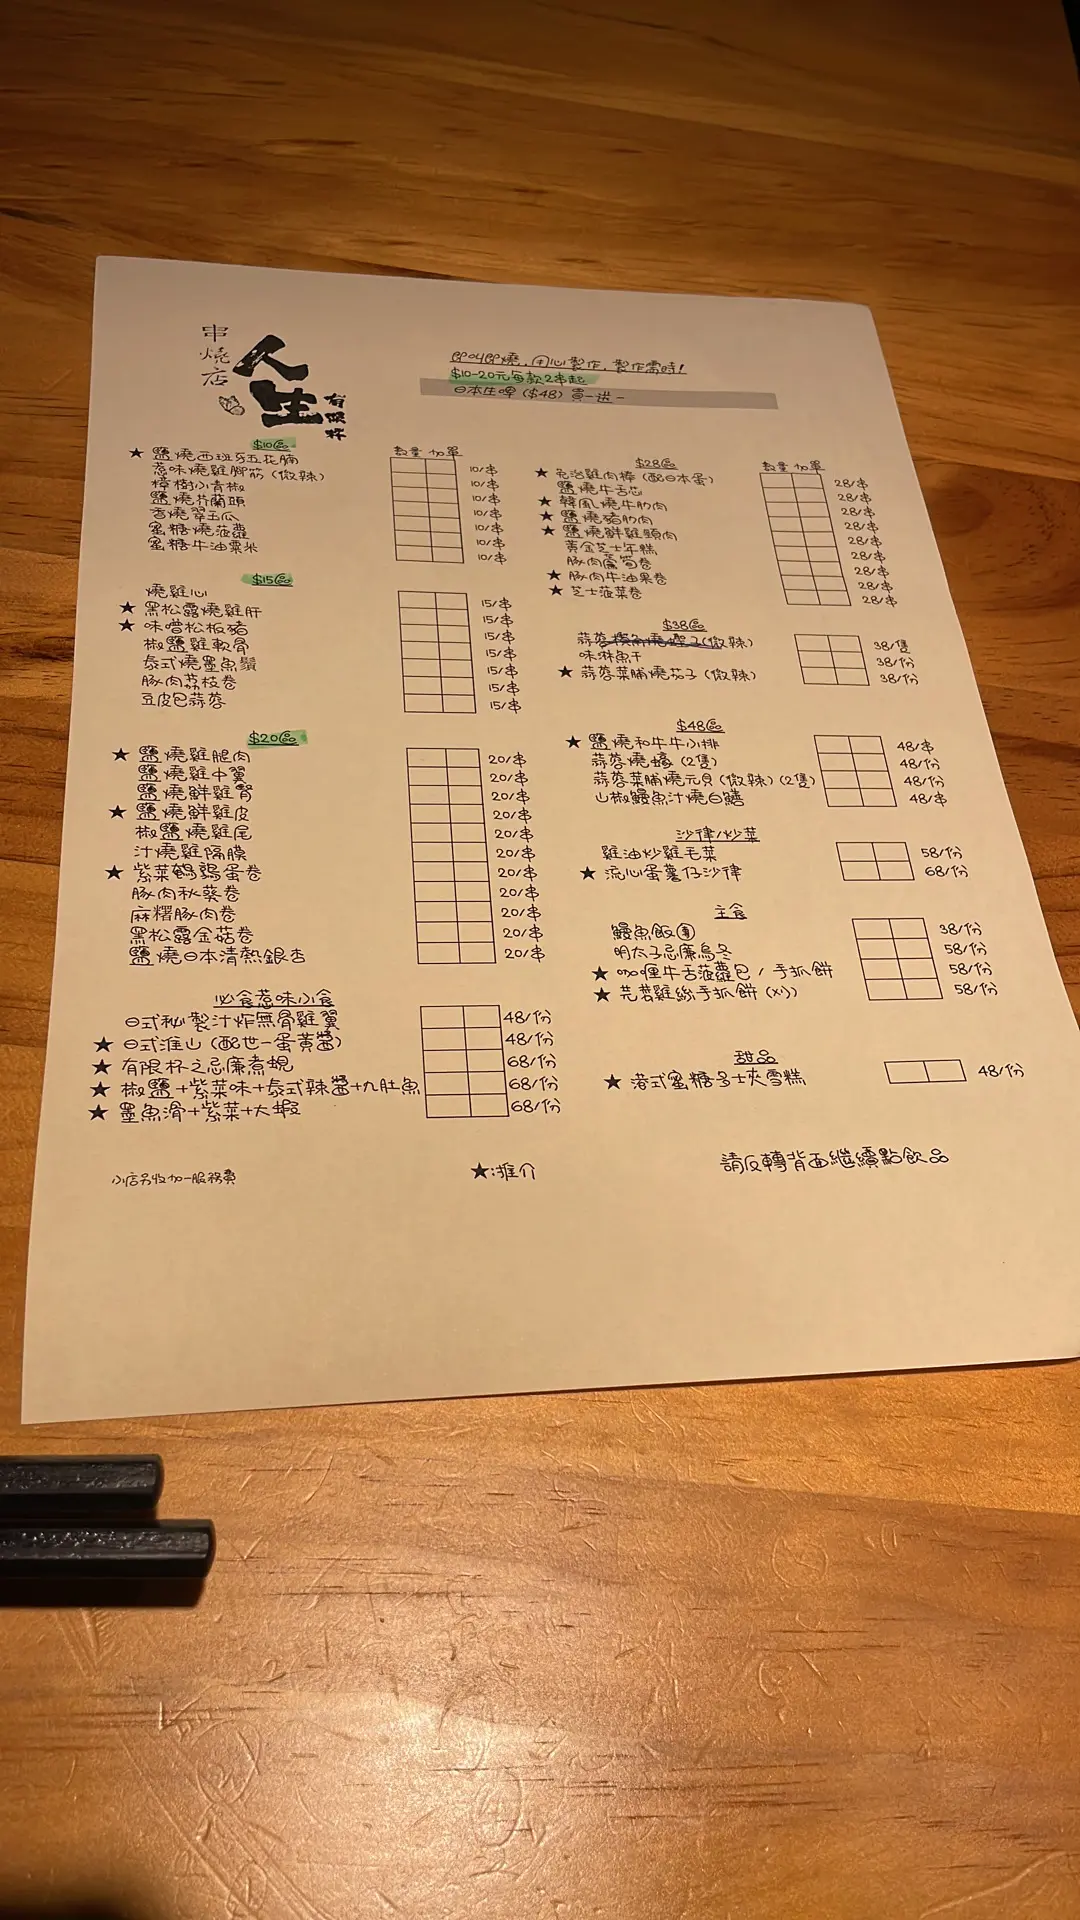 串燒店
人生
有限杯
即叫即燒,用心製作,製作需時!
$10-20元每款2串起
日本生啤($48)買一送一
$10區
數量 加單
★ 鹽燒西班牙五花腩 10/串
惹味燒雞腳筋(微辣) 10/串
樟樹小青椒 10/串
鹽燒芥蘭頭 10/串
香燒翠玉瓜 10/串
蜜糖燒菠蘿 10/串
蜜糖牛油粟米 10/串
$15區
燒雞心 15/串
★ 黑松露燒雞肝 15/串
★ 味噌松板豬 15/串
椒鹽雞軟骨 15/串
泰式燒墨魚鬚 15/串
豚肉荔枝卷 15/串
豆皮包蒜蓉 15/串
$20區
★ 鹽燒雞腿肉 20/串
鹽燒雞中翼 20/串
鹽燒鮮雞腎 20/串
★ 鹽燒鮮雞皮 20/串
椒鹽燒雞尾 20/串
汁燒雞隔膜 20/串
★ 紫菜鵪鶉蛋卷 20/串
豚肉秋葵卷 20/串
麻糬豚肉卷 20/串
黑松露金菇卷 20/串
鹽燒日本清熱銀杏 20/串
必食惹味小食
日式秘製汁炸無骨雞翼 48/份
★ 日式淮山(配世一蛋黃醬) 48/份
★ 有限杯之忌廉煮蜆 68/份
★ 椒鹽+紫菜味+泰式辣醬+九肚魚 68/份
★ 墨魚滑+紫菜+大蝦 68/份
小店另收加一服務費
$28區
數量 加單
★ 免治雞肉棒(配日本蛋) 28/串
鹽燒牛舌芯 28/串
★ 韓風燒牛肋肉 28/串
★ 鹽燒豬肋肉 28/串
★ 鹽燒鮮雞頸肉 28/串
黃金芝士年糕 28/串
豚肉蘆筍卷 28/串
★ 豚肉牛油果卷 28/串
★ 芝士菠菜卷 28/串
$38區
蒜蓉(微辣) 38/隻
味淋魚干 38/份
★ 蒜蓉菜脯燒茄子(微辣) 38/份
$48區
★ 鹽燒和牛牛小排 48/串
蒜蓉燒蠔(2隻) 48/份
蒜蓉菜脯燒元貝(微辣)(2隻) 48/份
山椒鰻魚汁燒白鱔 48/串
沙律/炒菜
雞油炒雞毛菜 58/份
★ 流心蛋薯仔沙律 68/份
主食
鰻魚飯團 38/份
明太子忌廉烏冬 58/份
★ 咖哩牛舌菠蘿包/手抓餅 58/份
★ 芫荽雞絲手抓餅(×1) 58/份
甜品
★ 港式蜜糖多士夾雪糕 48/份
★:推介
請反轉背面繼續點飲品